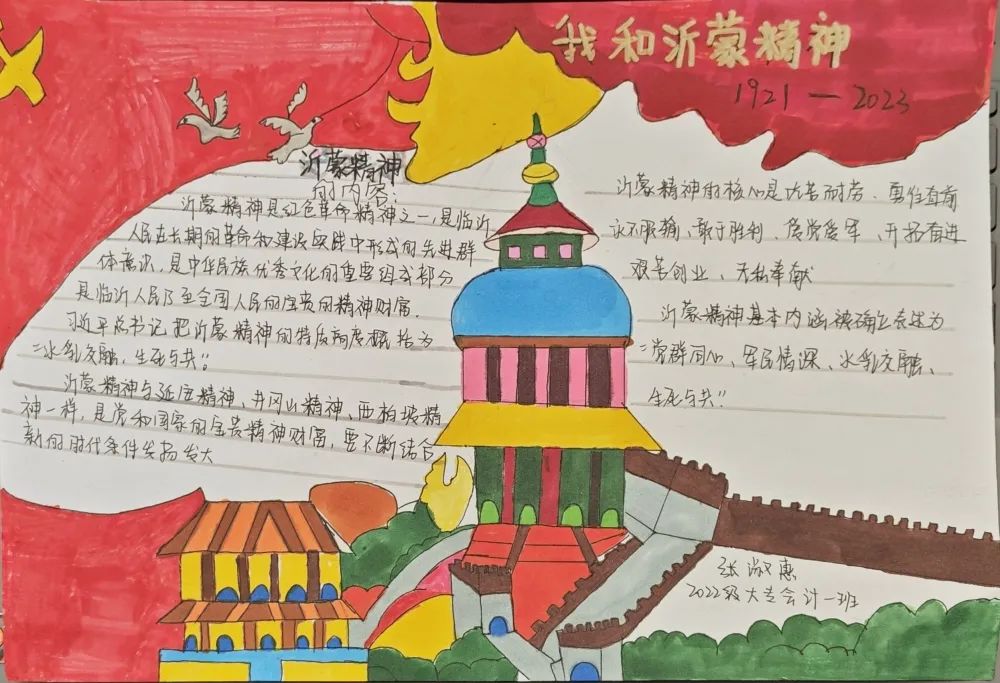 我和沂蒙精神
1921—2023
沂蒙精神
的内容:
沂蒙精神是红色革命精神之一,是临沂
人民在长期的革命和建设实践中形成的先进群
体意识,是中华民族优秀文化的重要组成部分
是临沂人民乃至全国人民的宝贵的精神财富.
习近平总书记把沂蒙精神的特质高度概括为
"水乳交融,生死与共"
沂蒙精神与延安精神、井冈山精神、西柏坡精
神一样,是党和国家的宝贵精神财富,要不断结合
新的时代条件发扬发大
沂蒙精神的核心是吃苦耐劳、勇往直前
永不服输、敢于胜利、爱党爱军、开拓奋进
艰苦创业、无私奉献
沂蒙精神基本内涵被确立表述为
"党群同心、军民情深、水乳交融、
生死与共"
张淑惠
2022级大专会计一班